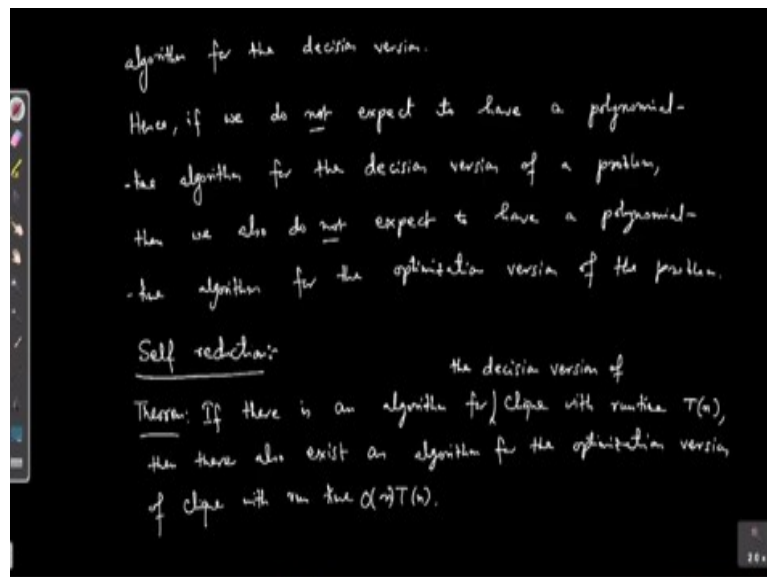 algorithm for the decision version.
Hence, if we do not expect to have a polynomial-
-time algorithm for the decision version of a problem,
then we also do not expect to have a polynomial-
-time algorithm for the optimization version of the problem.
Self reduction:-
the decision version of
Theorem: If there is an algorithm for Clique with runtime T(n),
then there also exist an algorithm for the optimization version
of clique with run time O(n)T(n).